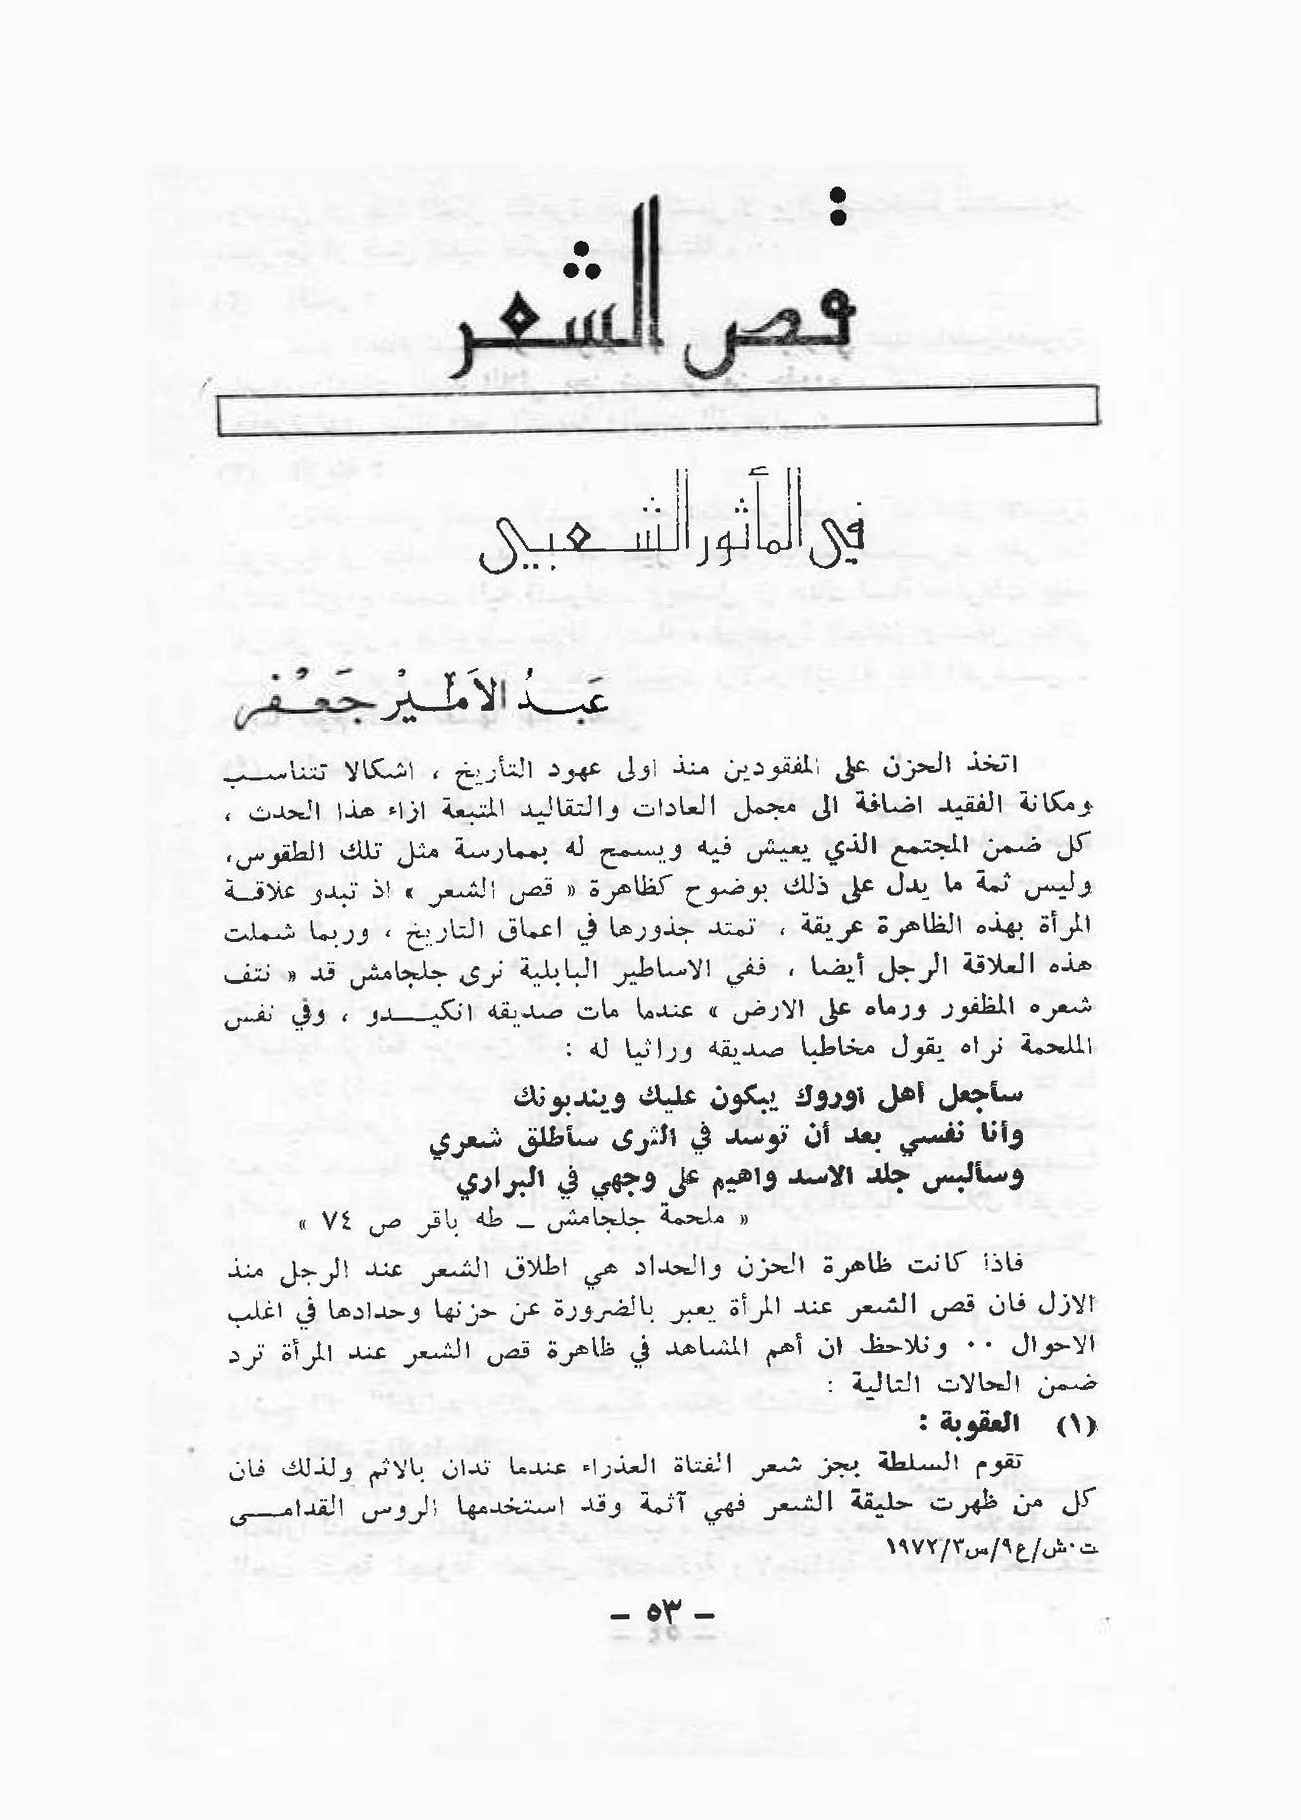 قص الشعر
في المأثور الشعبي
عَبدُ الاَميْر جَعْفر
اتخذ الحزن على المفقودين منذ اولى عهود التأريخ ، اشكالا تتناسب
ومكانة الفقيد اضافة الى مجمل العادات والتقاليد المتبعة ازاء هذا الحدث ،
كل ضمن المجتمع الذي يعيش فيه ويسمح له بممارسة مثل تلك الطقوس،
وليس ثمة ما يدل على ذلك بوضوح كظاهرة « قص الشعر » اذ تبدو علاقة
المرأة بهذه الظاهرة عريقة ، تمتد جذورها في اعماق التاريخ ، وربما شملت
هذه العلاقة الرجل أيضا ، ففي الاساطير البابلية نرى جلجامش قد « نتف
شعره المظفور ورماه على الارض » عندما مات صديقه انكيدو ، وفي نفس
الملحمة نراه يقول مخاطبا صديقه وراثيا له :
سأجعل أهل أوروك يبكون عليك ويندبونك
وأنا نفسي بعد أن توسد في الثرى سأطلق شعري
وسألبس جلد الاسد واهيم على وجهي في البراري
« ملحمة جلجامش ــ طه باقر ص ٧٤ »
فاذا كانت ظاهرة الحزن والحداد هي اطلاق الشعر عند الرجل منذ
الازل فان قص الشعر عند المرأة يعبر بالضرورة عن حزنها وحدادها في اغلب
الاحوال ٠٠ ونلاحظ ان أهم المشاهد في ظاهرة قص الشعر عند المرأة ترد
ضمن الحالات التالية :
(١) العقوبة :
تقوم السلطة بجز شعر الفتاة العذراء عندما تدان بالاثم ولذلك فان
كل من ظهرت حليقة الشعر فهي آثمة وقد استخدمها الروس القدامى
ت٠ش/ع٩/س٣/١٩٧٢
– ٥٣ –